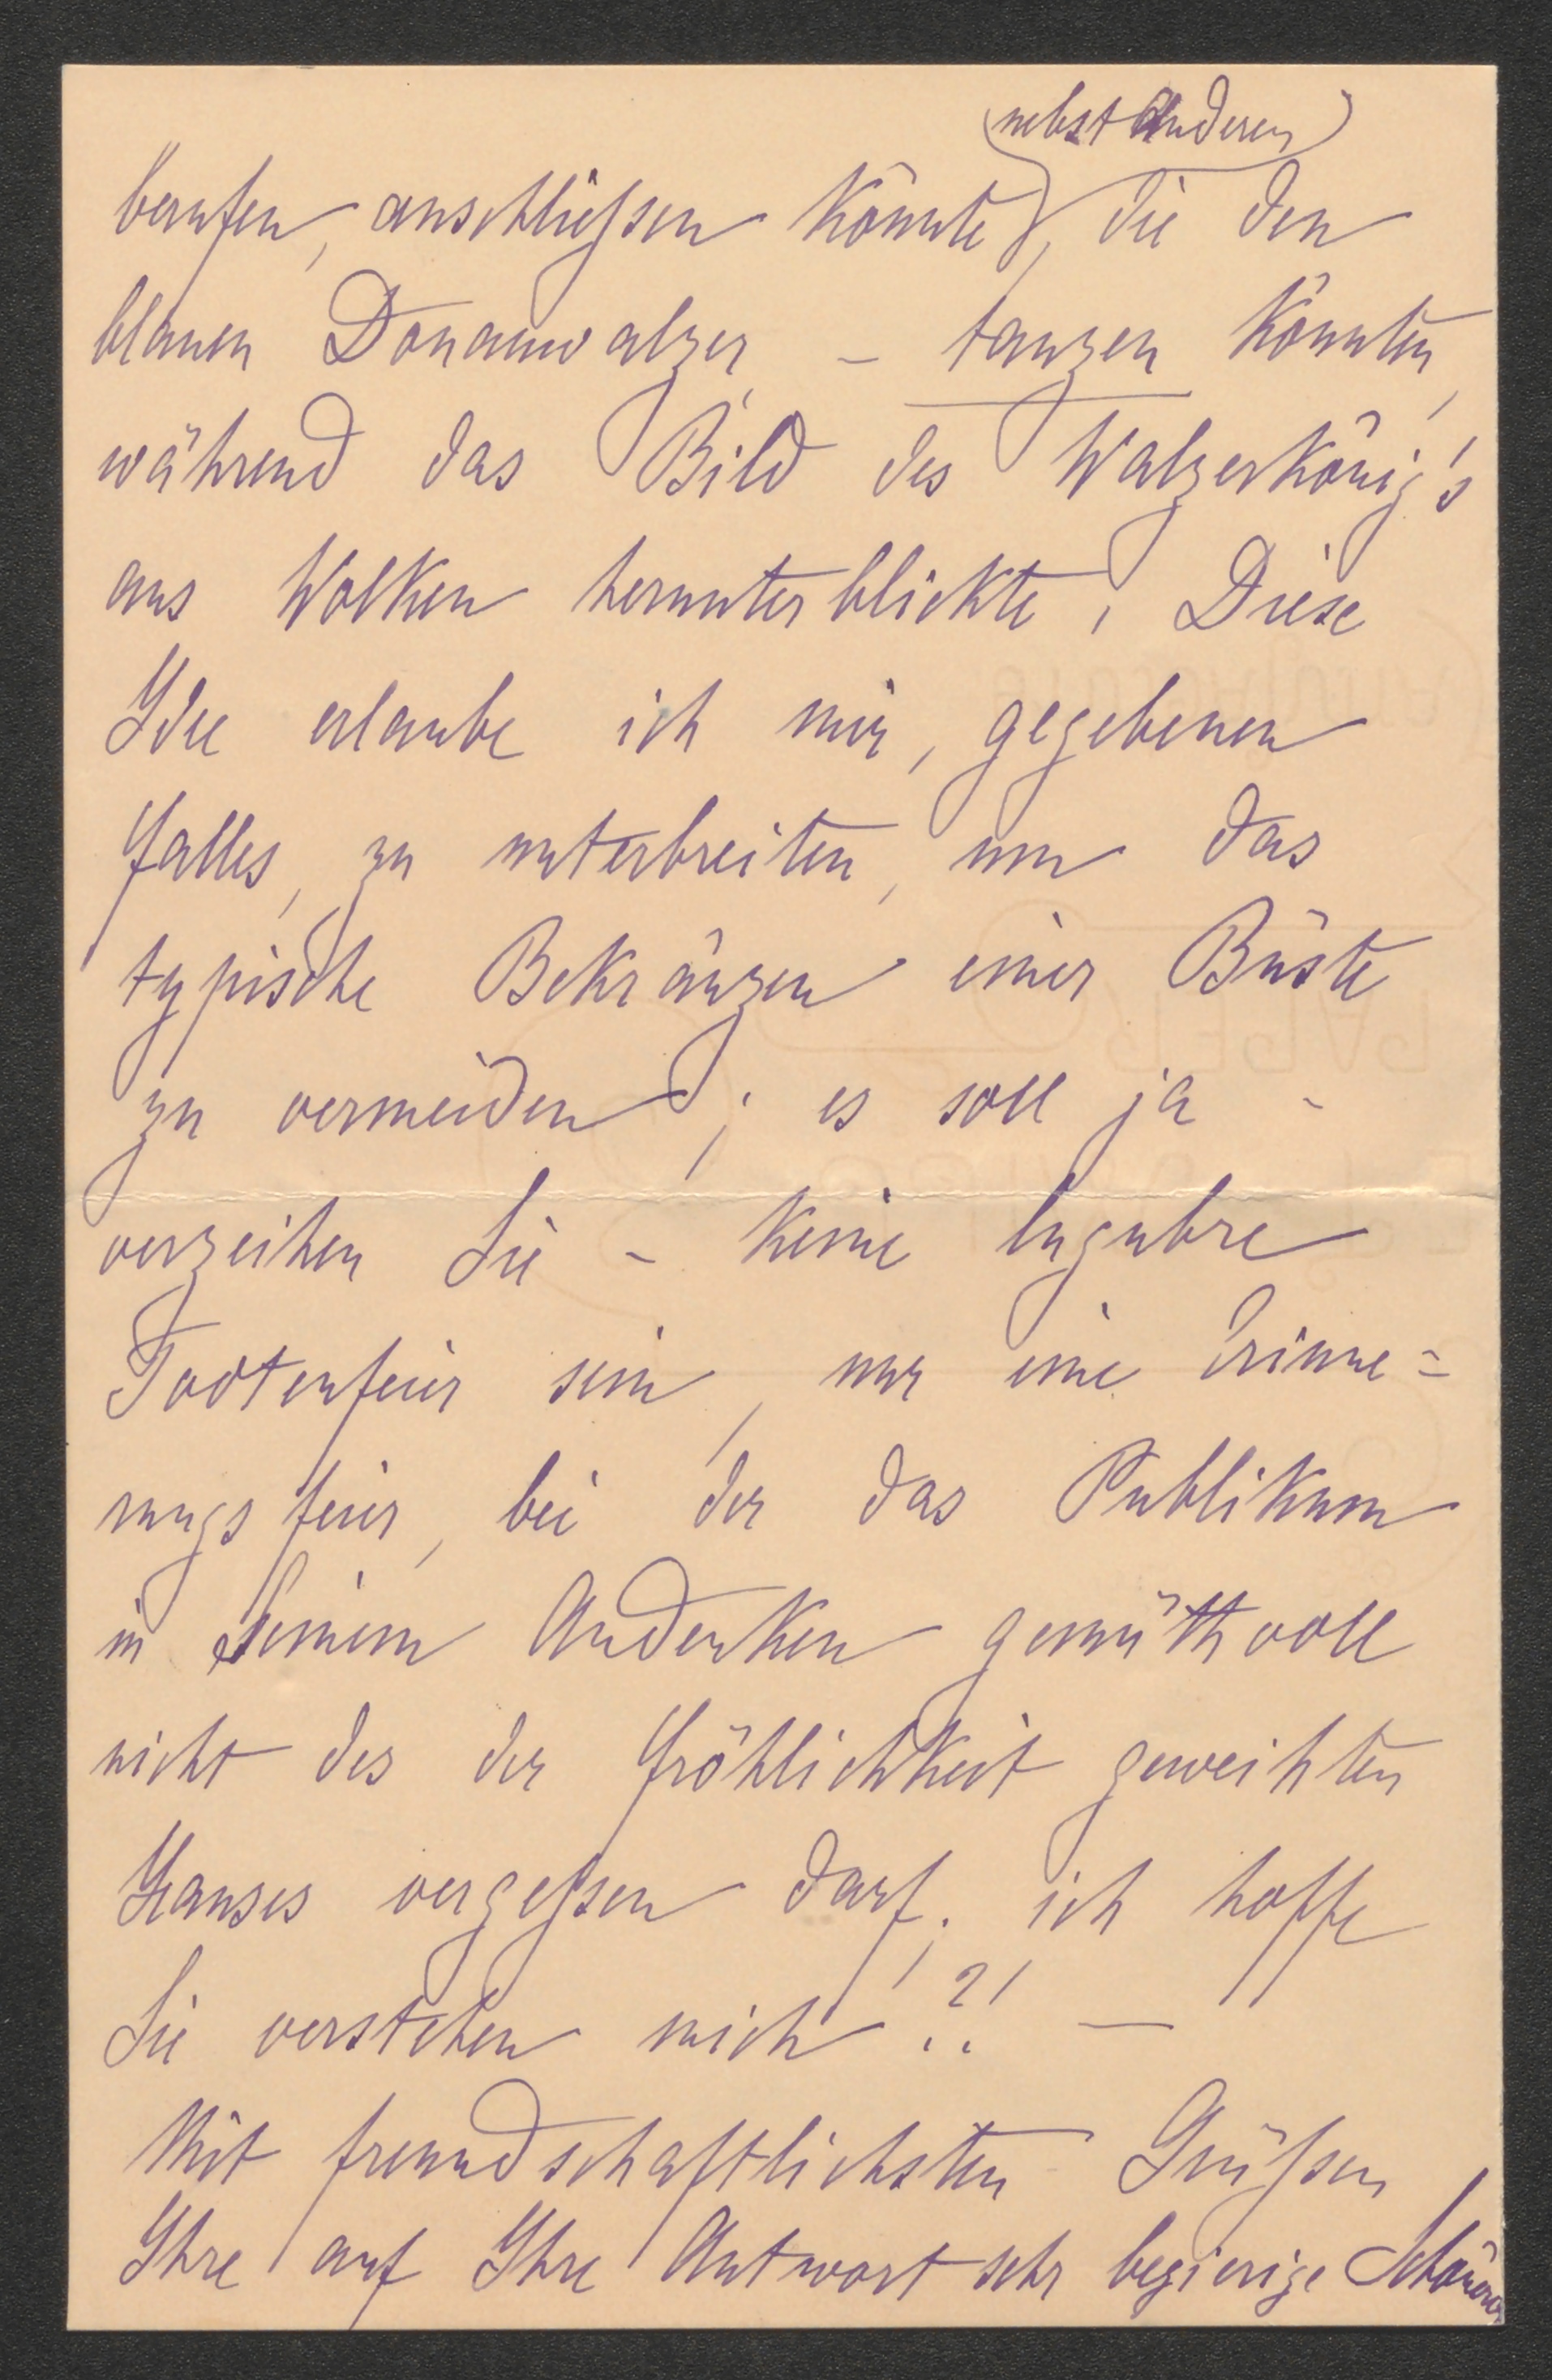 nebst anderen
berufen, anschließen könnte, die den
blauen Donauwalzer – tanzen könnten,
während das Bild des Walzerkönig's
aus Wolken herunterblickte; Diese
Idee erlaube ich mir, gegebenen
Falles, zu unterbreiten, um das
typische Bekränzen einer Büste
zu vermeiden; es soll ja –
verzeihen Sie – keine lugubre
Todtenfeier sein, nur eine Erinne=
rungsfeier, bei der das Publikum
in seinem Andenken gemüthvoll
nicht des der Fröhlichkeit geweihten
Hauses vergeßen darf; ich hoffe
Sie verstehen mich?! —
Mit freundschaftlichsten Grüßen
Ihre auf Ihre Antwort sehr begierige